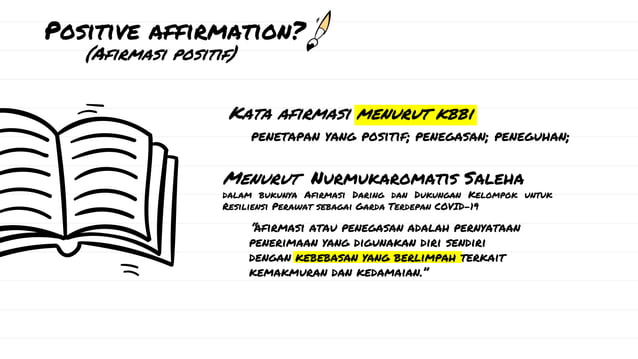 Positive affirmation?
(Afirmasi positif)
Kata afirmasi menurut KBBI
penetapan yang positif; penegasan; peneguhan;
Menurut Nurmukaromatis Saleha
dalam bukunya Afirmasi Daring dan Dukungan Kelompok untuk
Resiliensi Perawat sebagai Garda Terdepan COVID-19
"Afirmasi atau penegasan adalah pernyataan
penerimaan yang digunakan diri sendiri
dengan kebebasan yang berlimpah terkait
kemakmuran dan kedamaian."